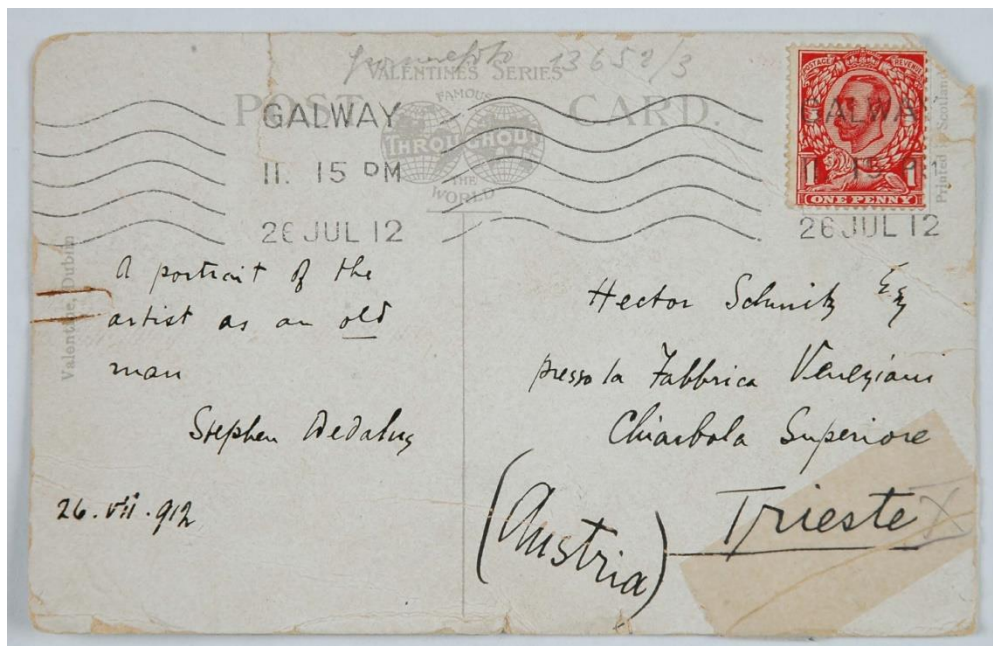 13652/3
VALENTINES SERIES
POST CARD.
FAMOUS
THROUGHOUT
THE
WORLD
GALWAY
11. 15 PM
26 JUL 12
POSTAGE REVENUE
1 1
ONE PENNY
GALWA
15
26 JUL 12
Printed in Scotland
Valentine, Dublin
A portrait of the
artist as an old
man
Stephen Dedalus
26.vii.912
Hector Schmitz Esq
presso la Fabbrica Veneziani
Chiarbola Superiore
Trieste X
(Austria)